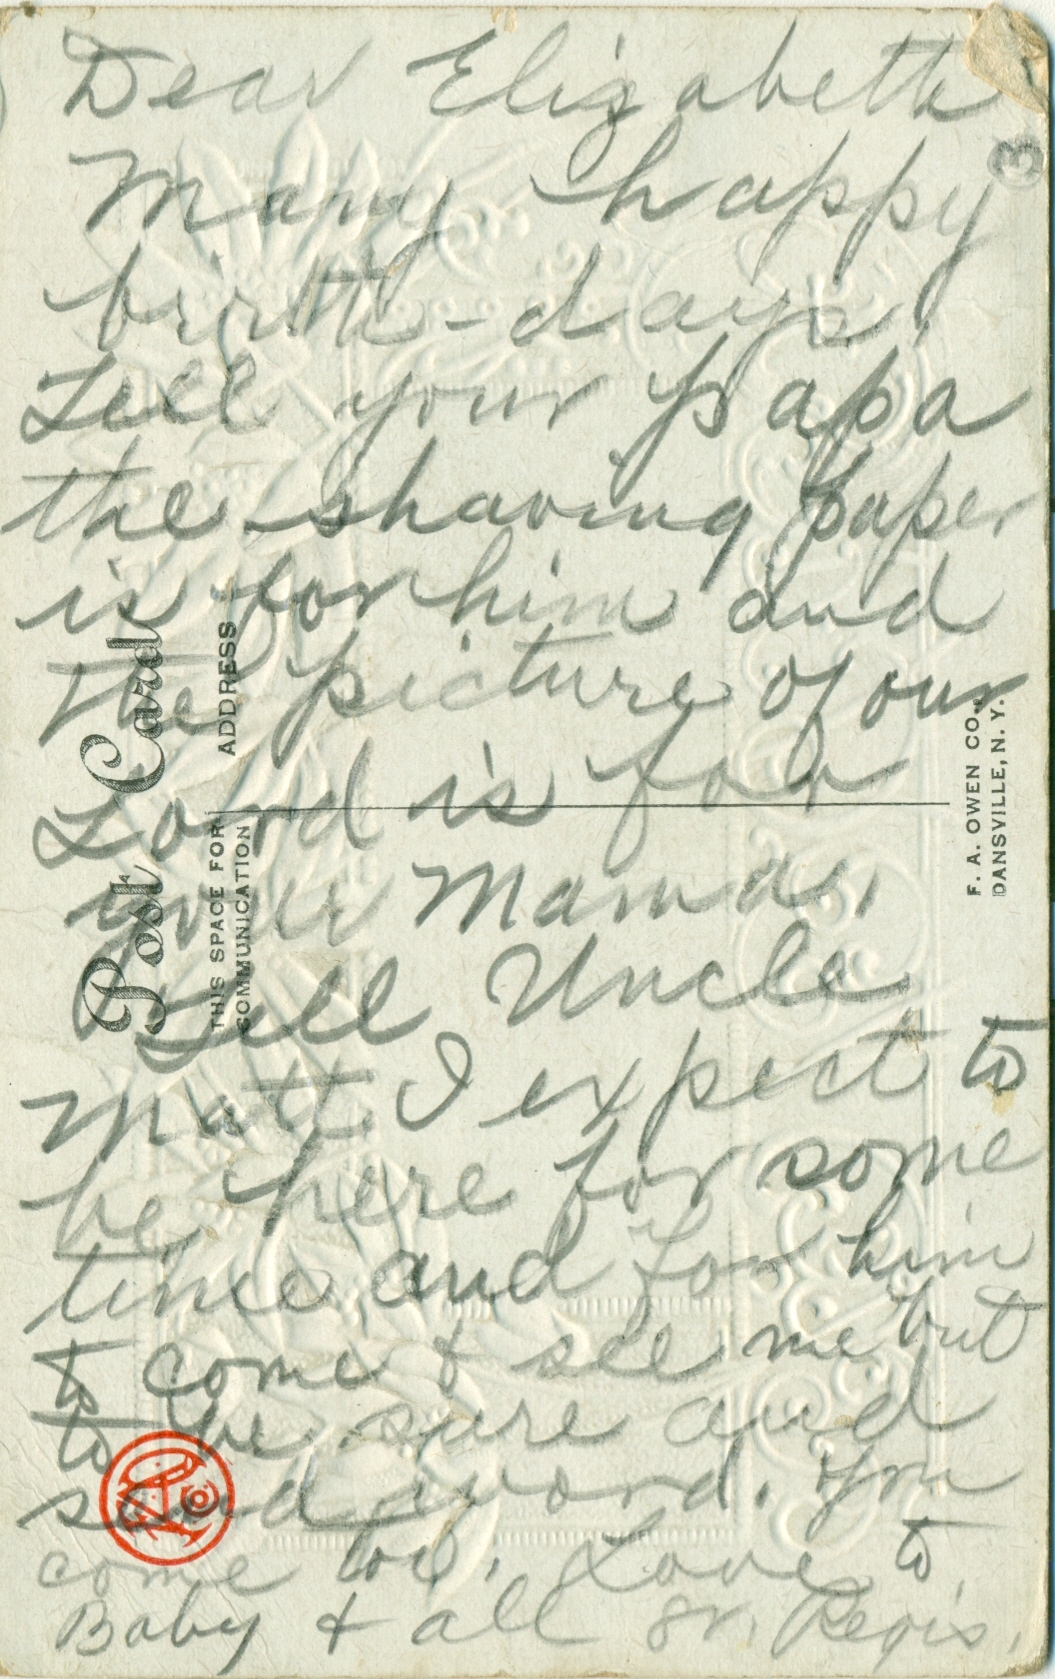 Dear Elizabeth
Many happy
birth-days.
Tell your papa
the shaving paper
is for him and
the picture of our
Lord is for
your Mama.
Tell Uncle
Matt I expect to
be here for some
time and for him
to come & see me but
to be sure and
send word. You
come too. Love to
Baby & all Sr. Regis.
3
Post Card
ADDRESS
THIS SPACE FOR
COMMUNICATION
F. A. OWEN CO.,
DANSVILLE, N. Y.